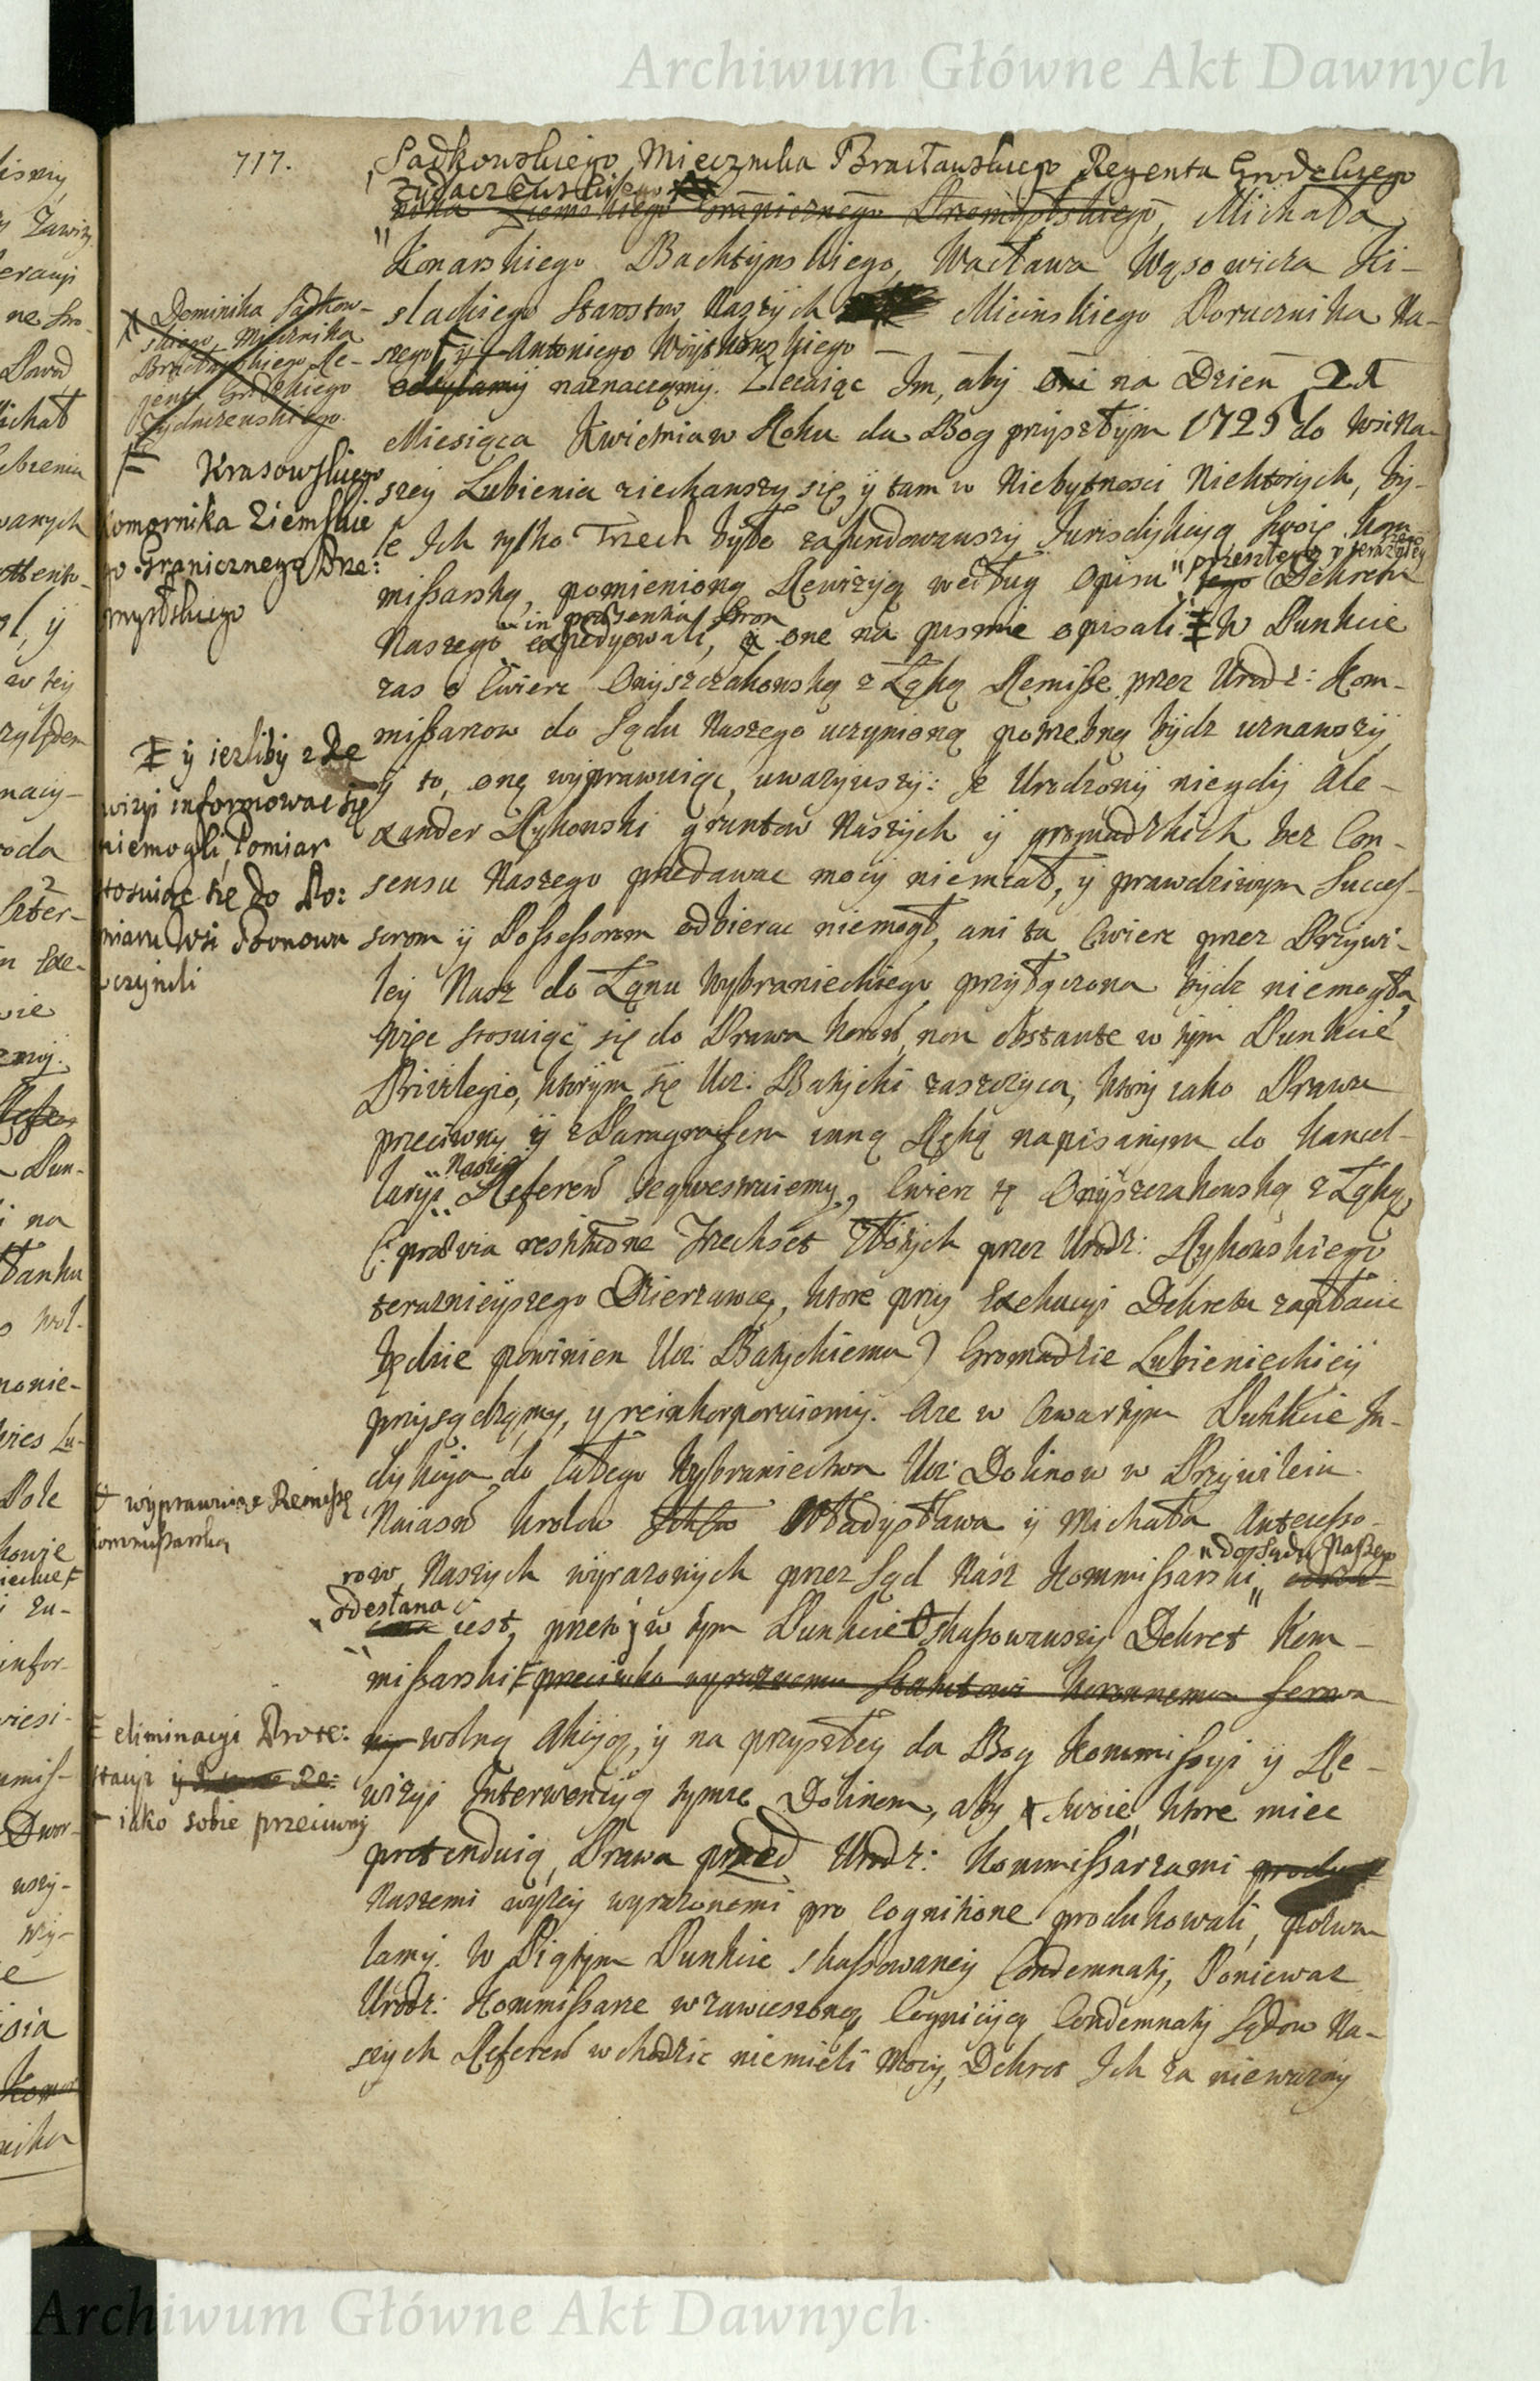 Archiwum Główne Akt Dawnych
717.
Sadkowskiego Miecznika Bracławskiego Regenta Grodzkiego
Zudaczewskiego
nika Ziemskiego Granicznego Przemyslskiego, Michała
Konarskiego Bachtyńskiego, Wacława Wąsowicza Ki-
slackiego Starostow Naszych Micinskiego Porucznika Na-
szego ŧ y ŧ Antoniego Woytkowskiego —
odsyłamy naznaczęmy. Zlecaiąc Im, aby oni na Dzien 21
Miesiąca Kwietnia w Roku da Bog przyszłym 1725 do Wsi Na-
szey Lubienia ziechawszy się, y tam w Niebytnosci Niektorych, by-
le Ich tylko Trzech było zafundowawszy Jurisdykcyą swoię Kom-
przeszłego y teraznieyszego
mißarską, pomienioną Rewizyą według Opisu tego Dekretu
in præsentia Stron
Naszego expedyowali, y one na pismie opisali. W Punkcie
zas o Cwierc Onyszczakowską z Łąką Remißę przez Urodz: Kom-
mißarzow do Sądu Naszego uczynioną potrzebną bydz uznawszy
y to, onę wyprawuiąc, uwazywszy: że Urodzony niegdy Ale-
xander Rykowski gruntow Naszych y gromadzkich bez Con-
sensu Naszego przedawac mocy niemiał, y prawdziwym Succeß-
sorom y Poßeßorom odbierac niemogł, ani ta Cwierc przez Przywi-
ley Nasz do Łanu Wybranieckiego przyłączona bydz niemogła,
więc stosuiąc się do Prawa Koron, non obstante w tym Punkcie
Privilegio, ktorym się Ur: Bakycki zaszczyca, ktory iako Prawu
przeciwny y z Paragrafem inną Ręką napisanym do Kancel-
Naszey
laryi Referen sequestruiemy, Cwierc tę Onyszczakowską z Łąką,
(: prævia restitutione Trzechset Złotych przez Urodz: Rykowskiego
teraznieyszego Dzierzawcę, ktore przy Exekucyi Dekretu zapłacic
będzie powinien Ur: Bakyckiemu) Gromadzie Lubienieckiey
przysądzamy, y reinkorporuiemy. Aze w Czwartym Punkcie In-
dukcyja do całego Wybraniectwa Ur: Dolinow w Przywileiu
Naiasn Krolow Władysława y Michała Anteceßo-
row Naszych wyrazonych przez Sąd Nasz Kommißarski do Sądu Naszego
odesłana iest, przeto y w tym Punkcie skaßowawszy Dekret Kom-
mißarski przeciwko wyraznemu Statutowi Koronnemu ferowa
ny wolną Akcyą, y na przyszłey da Bog Kommißyi y Re-
wizyi Interwencyą tymze Dolinom, aby swoie, ktore miec
pretenduią, Prawa przed Urodz: Kommißarzami
Naszemi wyzey wyrazonemi pro Cognitione produkowali, pozwa
lamy. W Piątym Punkcie skaßowaney Condemnaty, Poniewaz
Urodz: Kommißarze w zawieszoną Cognicyą Condemnaty Sądow Na-
szych Referen wchodzic niemieli Mocy, Dekret Ich za niewazny
Dominika Sadkow-
skiego, Miecznika
Bracławskiego Re-
genta Grodzkiego
Zydaczewskiego
Krasowskiego
Komornika Ziemskie
go Granicznego Prze:
myslskiego
y iezliby z Re
wizyi informowac się
niemogli, Pomiar
stosuiąc się do Po:
miaru Wsi
uczynili
wyprawuiąc Remißę
Kommißarską
eliminacyi Prote:
stacyi
iako sobie przeciwney
Archiwum Główne Akt Dawnych